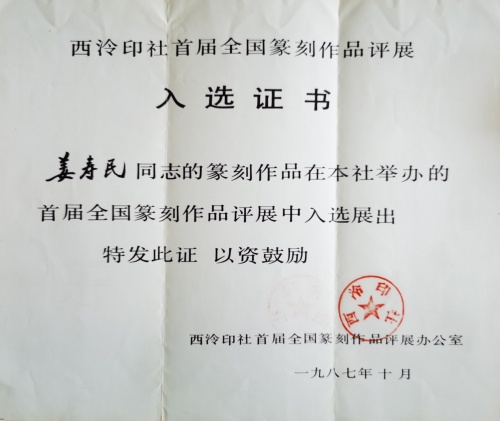 西泠印社首届全国篆刻作品评展
入选证书
姜寿民同志的篆刻作品在本社举办的
首届全国篆刻作品评展中入选展出
特发此证 以资鼓励
西泠印社
西泠印社首届全国篆刻作品评展办公室
一九八七年十月